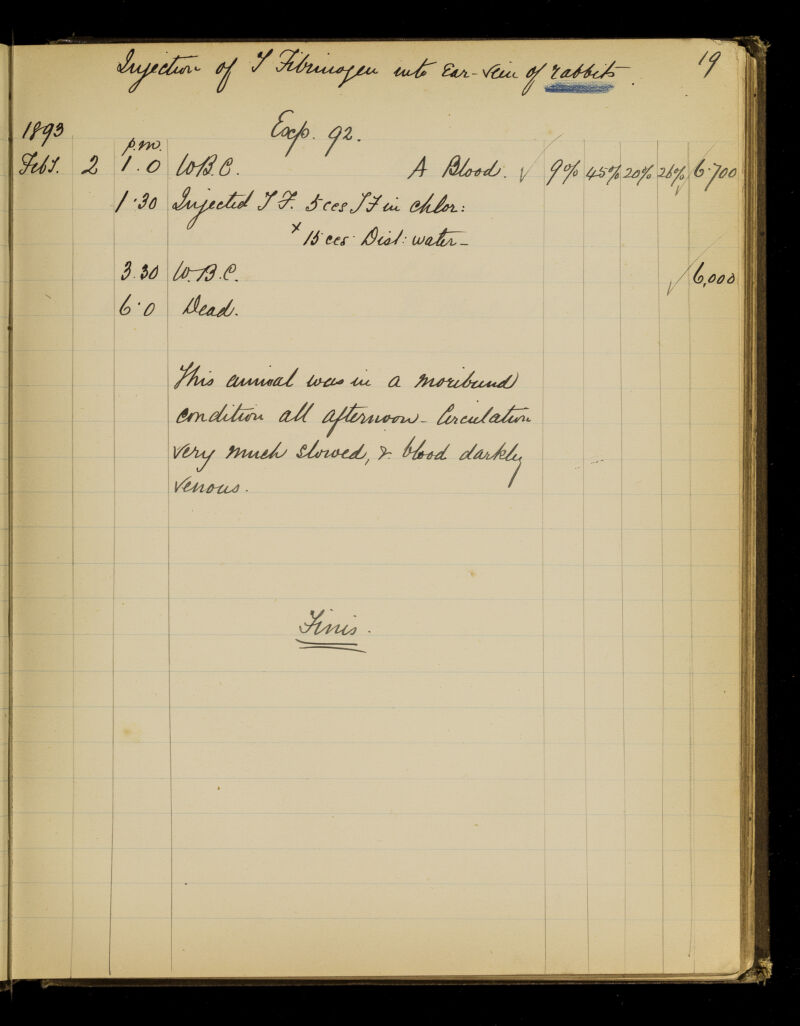 19
Injection of T Fibrinogen into Ear-vein of rabbits.
1893 Exp. 92.
p.m.
Feby. 2 1.0 W.B.C. A Blood. ✓ 9% 45% 20% 26% ✓ 6.700
1.30 Injected T F. 5 ccs T F in chlor:
+ 15 ccs Dist: water-
3.30 W.B.C. ✓ 6,000
6.0 Dead.
This animal was in a moribund
condition all afternoon - Circulation
very much slowed, & blood darkly
venous.
Finis.